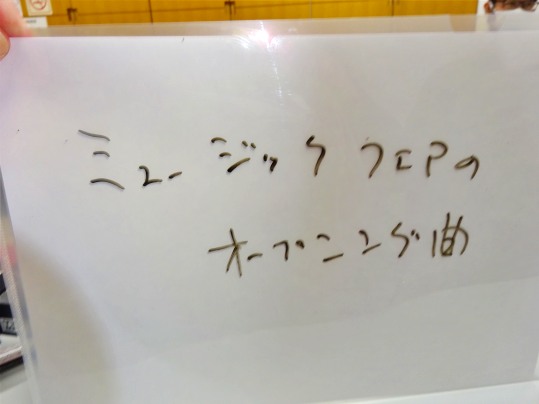 ミュージックフェアの
オープニング曲